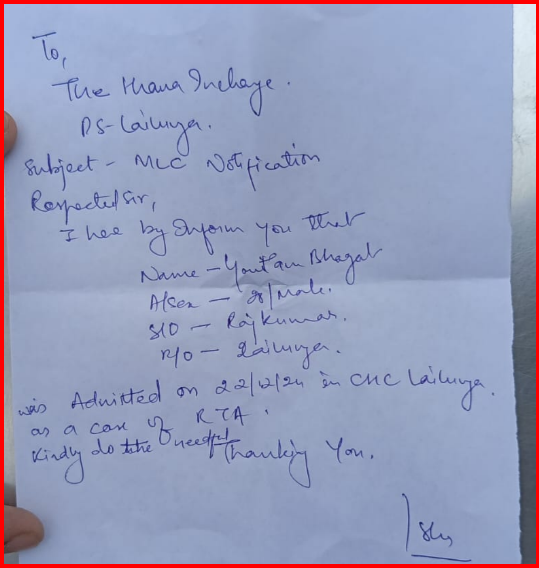 To,
The Thana Incharge.
PS- Lailunga.
Subject - MLC Notification
Respected Sir,
I here by Inform you that
Name - Bhagat
A/Sex - /Male.
S/O - Rajkumar.
R/O - Lailunga.
was Admitted on 22/ /24 in CHC Lailunga.
as a case of RTA.
Kindly do the needful
Thanking You.